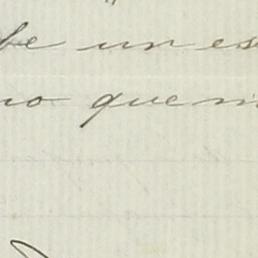 be un es
no que m